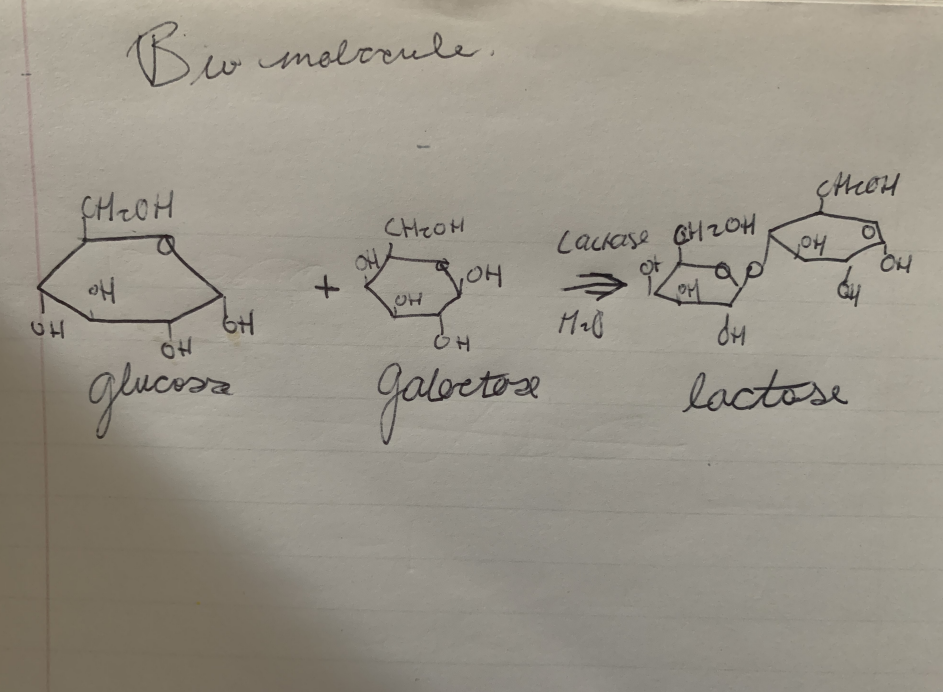 Biomolecule.
CH2OH
O
OH
OH
OH
OH
glucose
+
CH2OH
OH
O
OH
OH
OH
Galactose
Lactase
H2O
CH2OH
O
OH
OH
O
CH2OH
O
OH
OH
OH
lactose